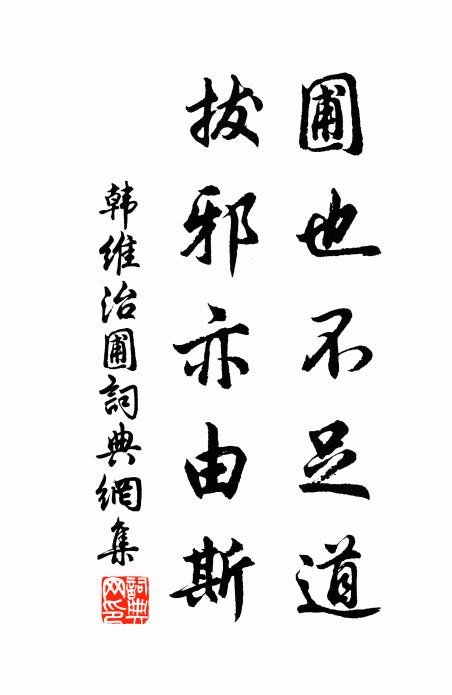 圃也不足道
拔邪亦由斯
韩维治圃詞典網集
詞典网印